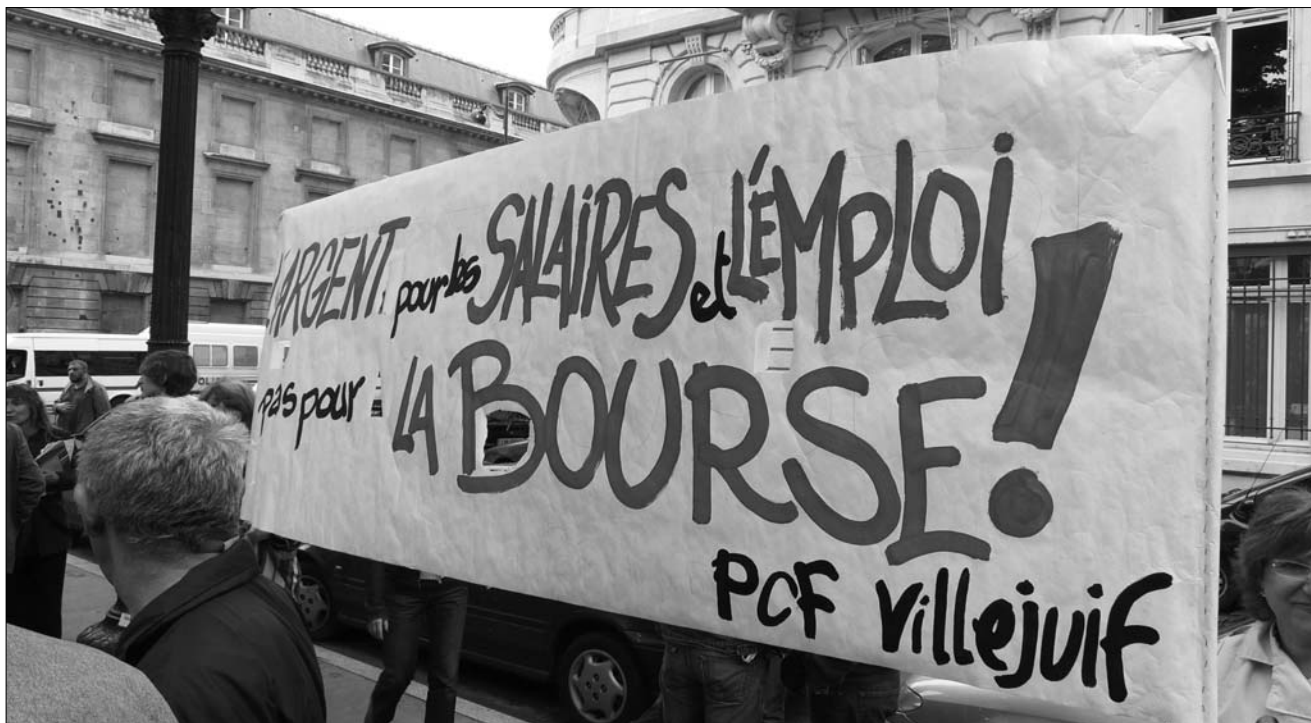 L'ARGENT pour les SALAIRES et L'ÉMPLOI
pas pour LA BOURSE!
PCF Villejuif